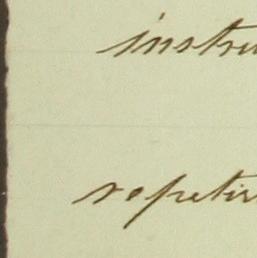 instru
repetir